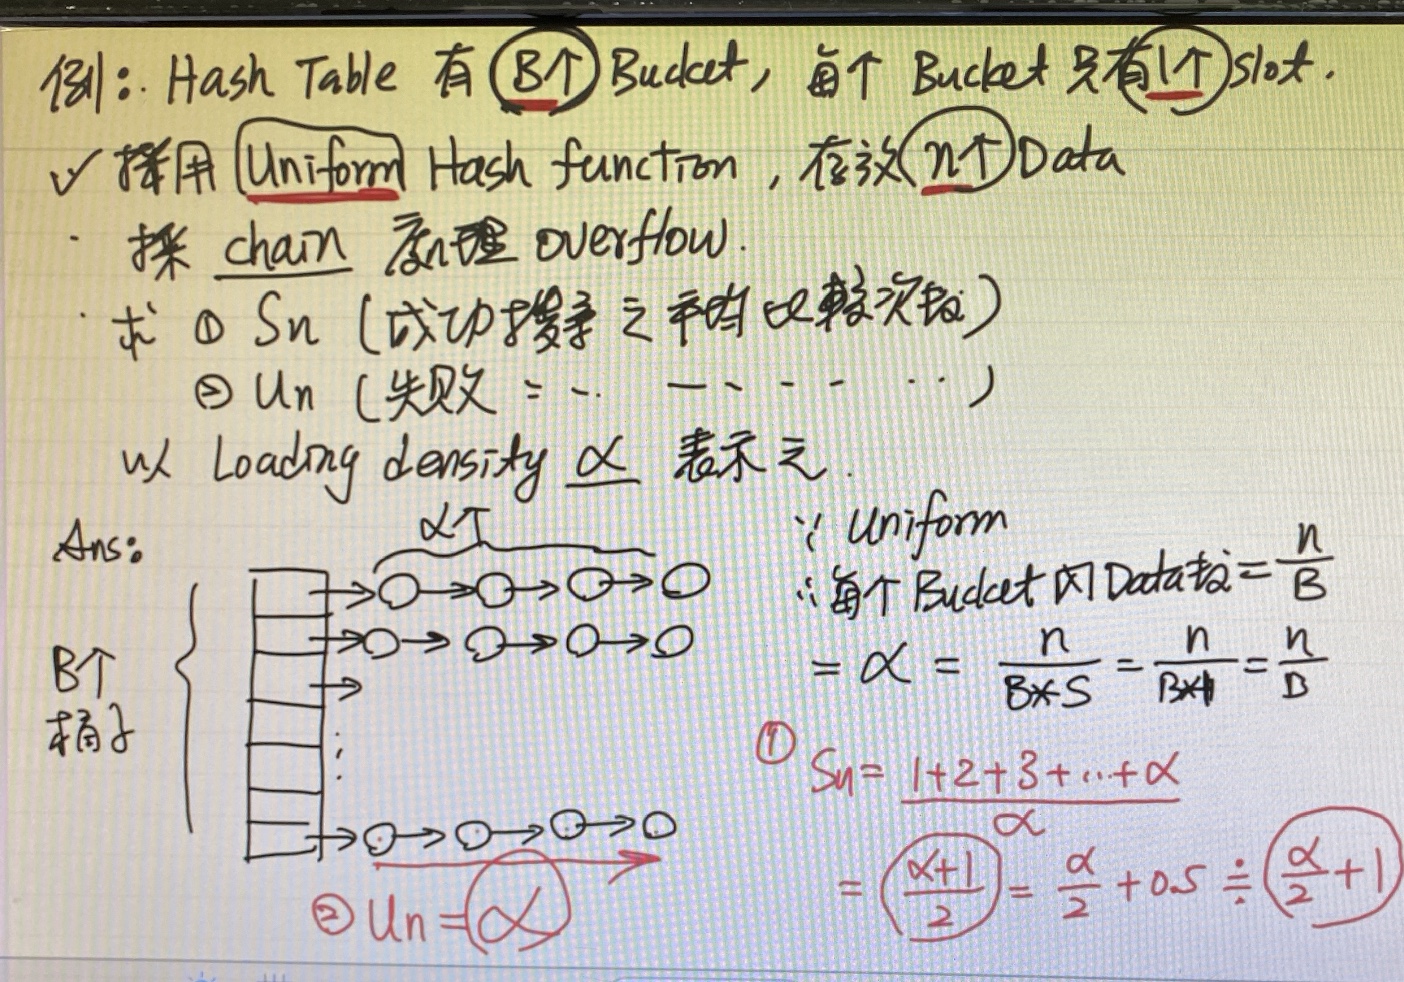 例:. Hash Table 有 B个 Bucket, 每个 Bucket 只有1个 slot.
✓ 採用 Uniform Hash function, 存放 n个 Data
· 採 chain 处理 overflow.
· 求 ① Sn (成功搜寻之平均比較次数)
② Un (失败 = -. — - - - ·· )
以 Loading density α 表示之.
Ans:
α个
B个
桶子
② Un = α
∵ Uniform
∴ 每个 Bucket 内 Data 数 = n/B
= α = n/(B*S) = n/(B*1) = n/B
① Sn = (1+2+3+...+α)/α
= (α+1)/2 = α/2 + 0.5 ≑ α/2 + 1